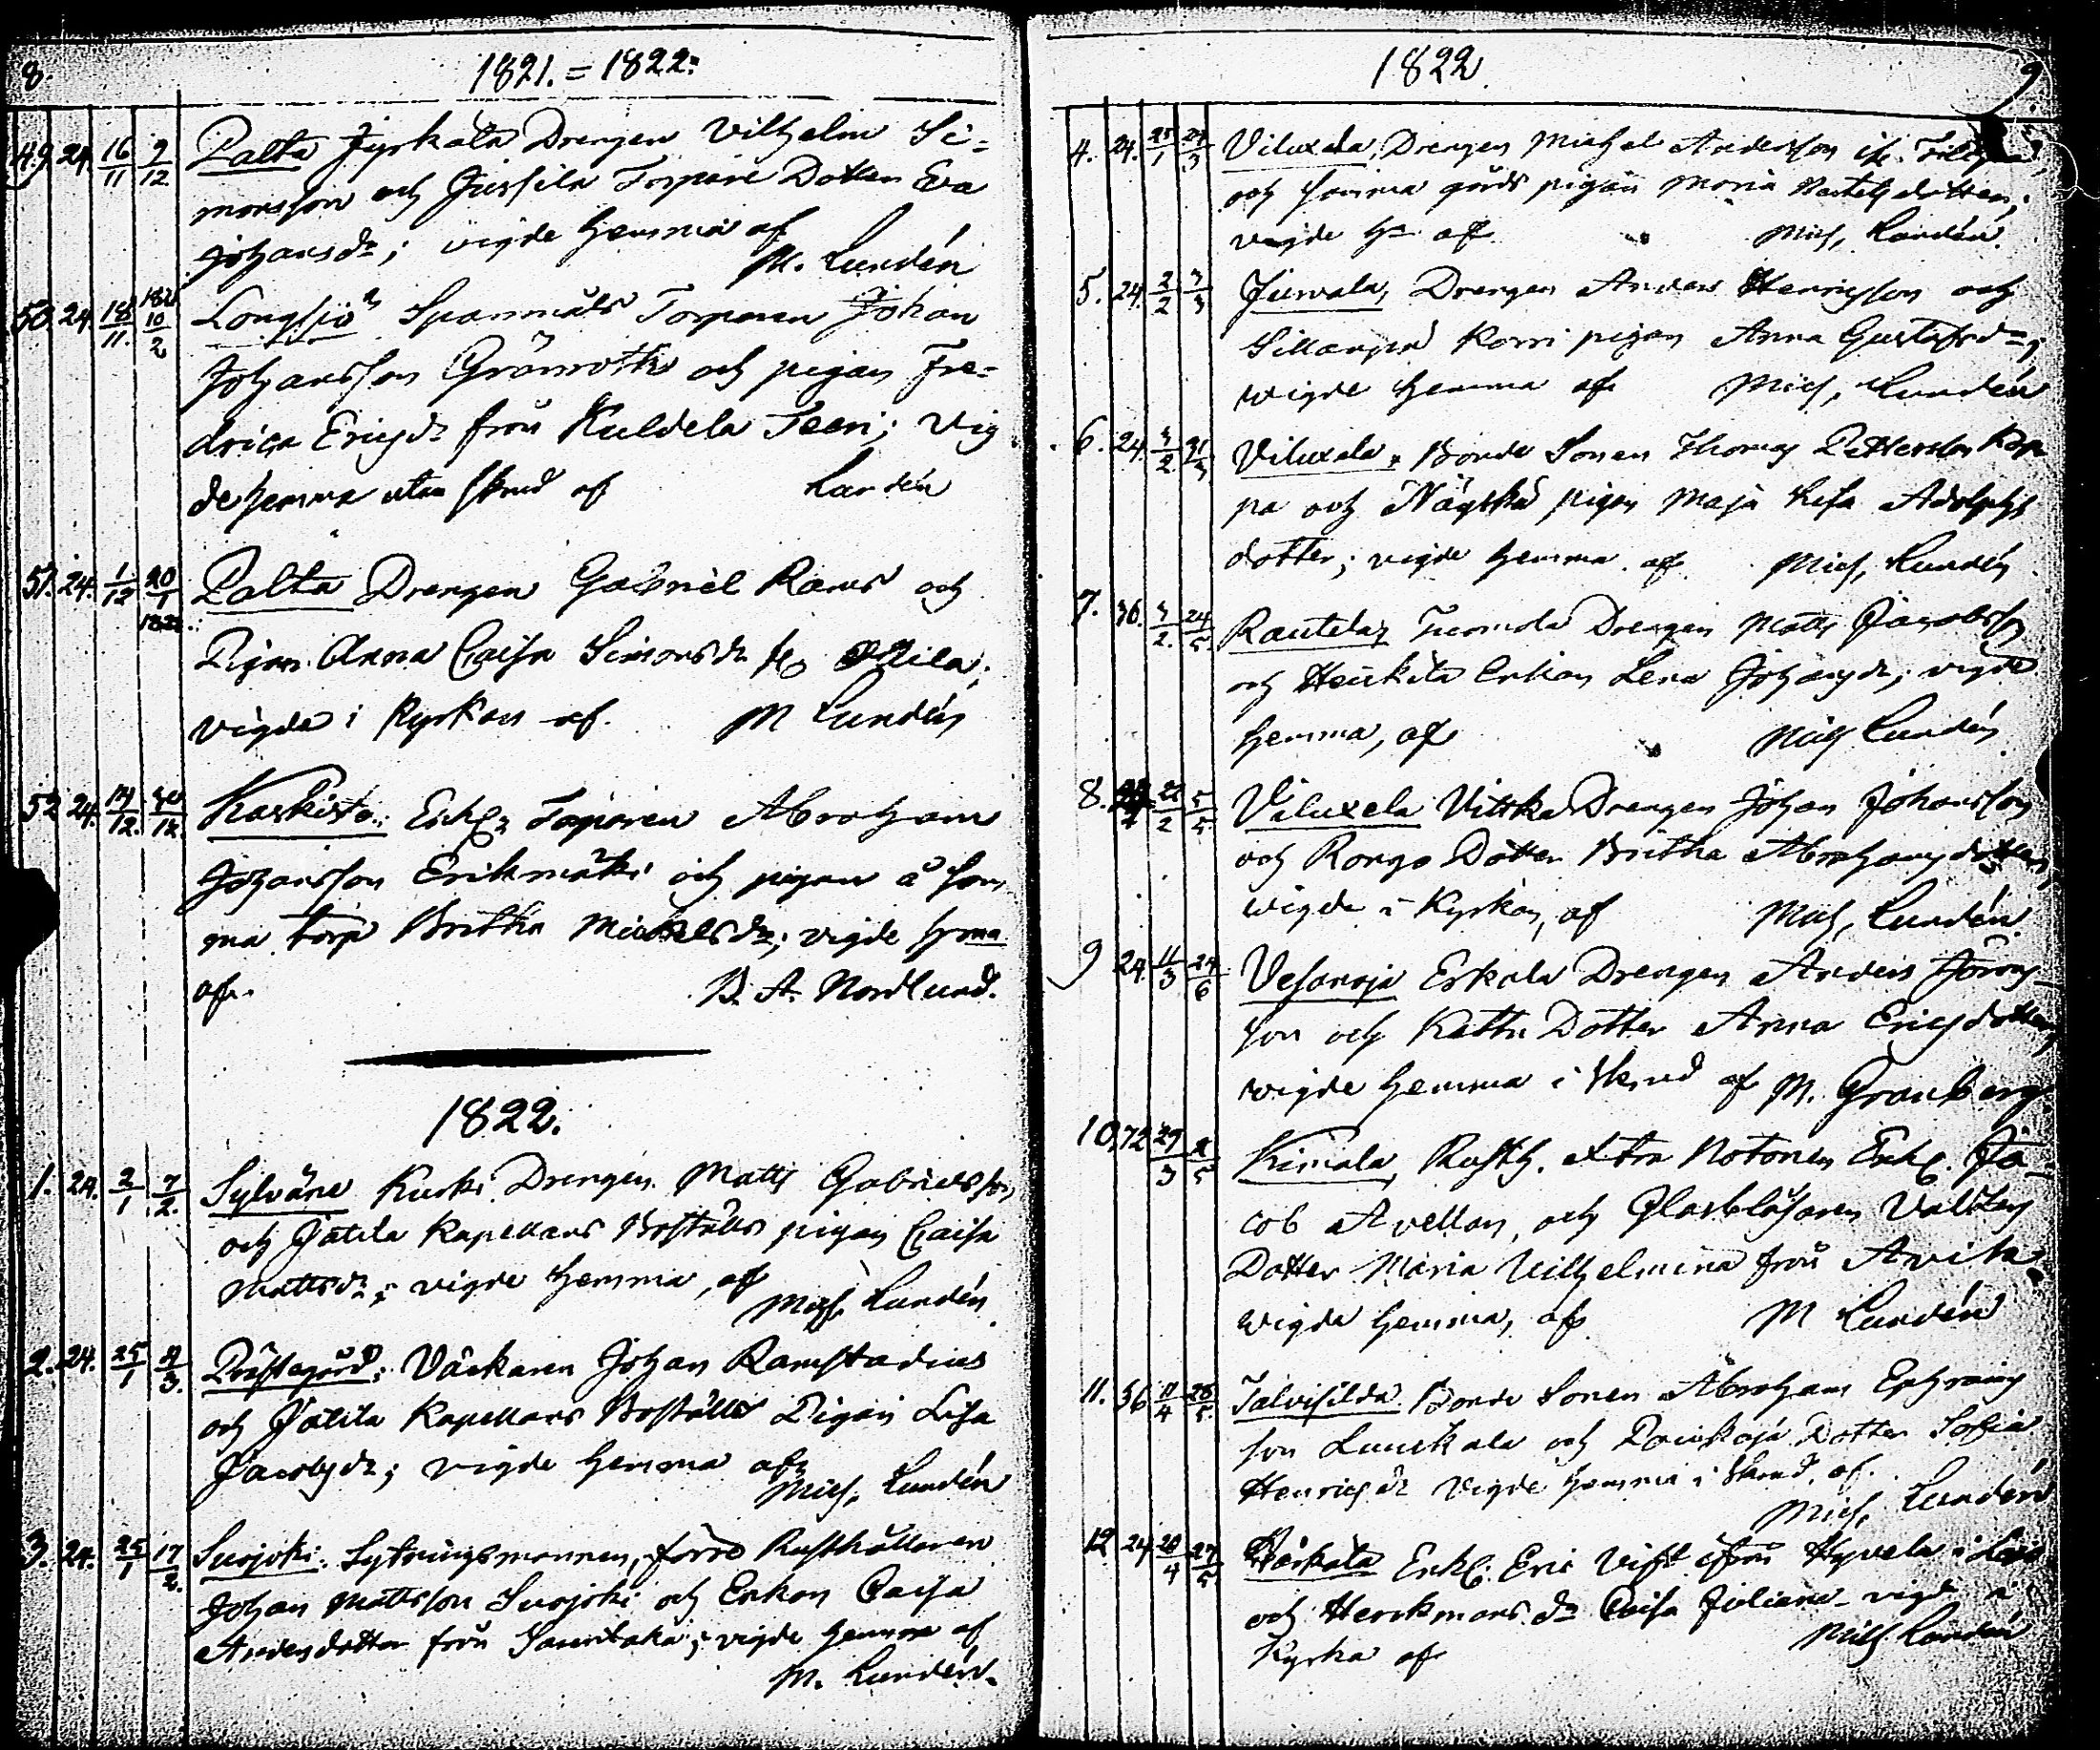 8.
1821. = 1822.
49. 24. 16/11 9/12 Palta Jyrkälä Drengen Vilhelm Si=
monsson och Jussila Torpare Dotter Eva
Johansdr; vigde hemma af
M. Lundén
50. 24. 18/11. 1822 10/2 Långsjö Torparen Johan
Johansson Grönroth och pigan Fre=
drica Ericsdr från Kuldela Teeri; vig
de hemma utan skrud af Lundén
51. 24. 1/12 20/1 1822. Palta Drengen Gabriel Rams och
Pigan Anna Caisa Simonsdr
vigde i Kyrkan af. M Lundén
52 24. 14/12. Koskisto: Enkl. Torparen Abraham
Johansson Erikmäki och pigan å sam
ma torp Britha Mickelsdr; vigde hma
af. B. A. Nordlund.
1822.
1. 24. 2/1. 7/2. Sylväne Kurki Drengen Matts Gabrielsson,
och Jätila Kapellans Boställs pigan Caisa
Mattsdr; vigde hemma, af
Mich. Lundén
2. 24. 25/1 Prästegård: Väckaren Johan Ramstadius
och Jätila Kapellans Boställs Pigan Lisa
Jacobsdr; vigde hemma af
Mich. Lundén
3. 24. 25/1 17/2. Suojoki. Sytningsmannen, förre Rusthållaren
Johan Mattsson Suojoki och Enkan Caisa
Andersdotter från; vigde hemma af
M. Lundén.
1822.
9.
4. 24. 25/1 24/3 Viluxela, Drengen Michel Andersson
och samma gårds pigan Maria
vigde hma af Mich. Lundén.
5. 24. 2/2 3/3 Juvala, Drengen Anders Henricsson och
Sillanpä Korri pigan Anna Gustafsdr;
vigde hemma af Mich. Lundén
6. 24. 3/2 31/3 Viluxela, Bonde Sonen Thomas Pettersson
pa och pigan Maja Lisa Adolphs
dotter; vigde hemma af Mich. Lundén
7. 36. 3/2. 24/5. Rautela, Tuomola Drengen Matts Jacobsson
och Heikilä Enkan Lena Johansdr; vigde
hemma, af Mich Lundén
8. 22/2 5/5. Viluxela Vittka Drengen Johan Johansson
och Rongo Dotter Britha Abrahamsdotter,
vigde i Kyrkan, af Mich. Lundén.
9 24. 11/3 24/6 Vesanoja Erkola Drengen Anders
son och Kettu Dotter Anna Ericsdotter,
vigde hemma i Skrud af M. Granberg.
10. 72 29/3 Kimala, Rusth. Notonen Enkl. Ja=
cob Avellan, och Glasblåsaren
Dotter Maria Vilhelmina från Avik
vigde hemma, af M Lundén
11. 36 11/4 28/5. Talvisilda. Bonde Sonen Abraham Ephraims
son Luuckala och Dotter Sofia
Henricsdr vigde hemma i Skrud, af.
Mich. Lundén
12 24. 28/4 27/5 Enkl. Eric från Hyvelä i
och Herckmans dr Caisa Juliana vigde i
Kyrka af Mich Lundén